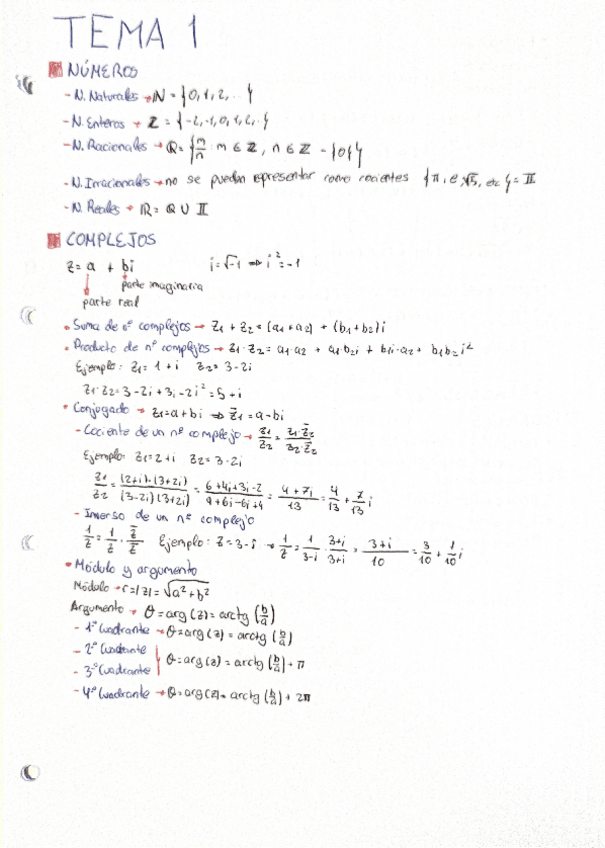 TEMA 1
NÚMEROS
- N. Naturales → ℕ = {0, 1, 2, ...}
- N. Enteros → ℤ = {-2, -1, 0, 1, 2, ..}
- N. Racionales → ℚ = {m/n : m ∈ ℤ, n ∈ ℤ - {0}}
- N. Irracionales → no se pueden representar como cocientes {π, e, √5, etc} = 𝕀
- N. Reales → ℝ = ℚ ∪ 𝕀
COMPLEJOS
z = a + bi i = √-1 ⇒ i² = -1
parte imaginaria
parte real
• Suma de nº complejos → z1 + z2 = (a1 + a2) + (b1 + b2)i
• Producto de nº complejos → z1 · z2 = a1·a2 + a1b2i + b1i·a2 + b1b2i²
Ejemplo: z1 = 1 + i z2 = 3 - 2i
z1·z2 = 3 - 2i + 3i - 2i² = 5 + i
• Conjugado → z1 = a + bi ⇒ z̄1 = a - bi
- Cociente de un nº complejo → z1/z2 = z1·z̄2/z2·z̄2
Ejemplo: z1 = 2 + i z2 = 3 - 2i
z1/z2 = (2+i)·(3+2i)/(3-2i)(3+2i) = 6+4i+3i-2/9+6i-6i+4 = 4+7i/13 = 4/13 + 7/13 i
- Inverso de un nº complejo
1/z = 1/z · z̄/z̄ Ejemplo: z = 3 - i → 1/z = 1/3-i · 3+i/3+i = 3+i/10 = 3/10 + 1/10 i
• Módulo y argumento
Módulo → r = |z| = √a² + b²
Argumento → θ = arg(z) = arctg(b/a)
- 1º Cuadrante → θ = arg(z) = arctg(b/a)
- 2º Cuadrante
- 3º Cuadrante θ = arg(z) = arctg(b/a) + π
- 4º Cuadrante → θ = arg(z) = arctg(b/a) + 2π